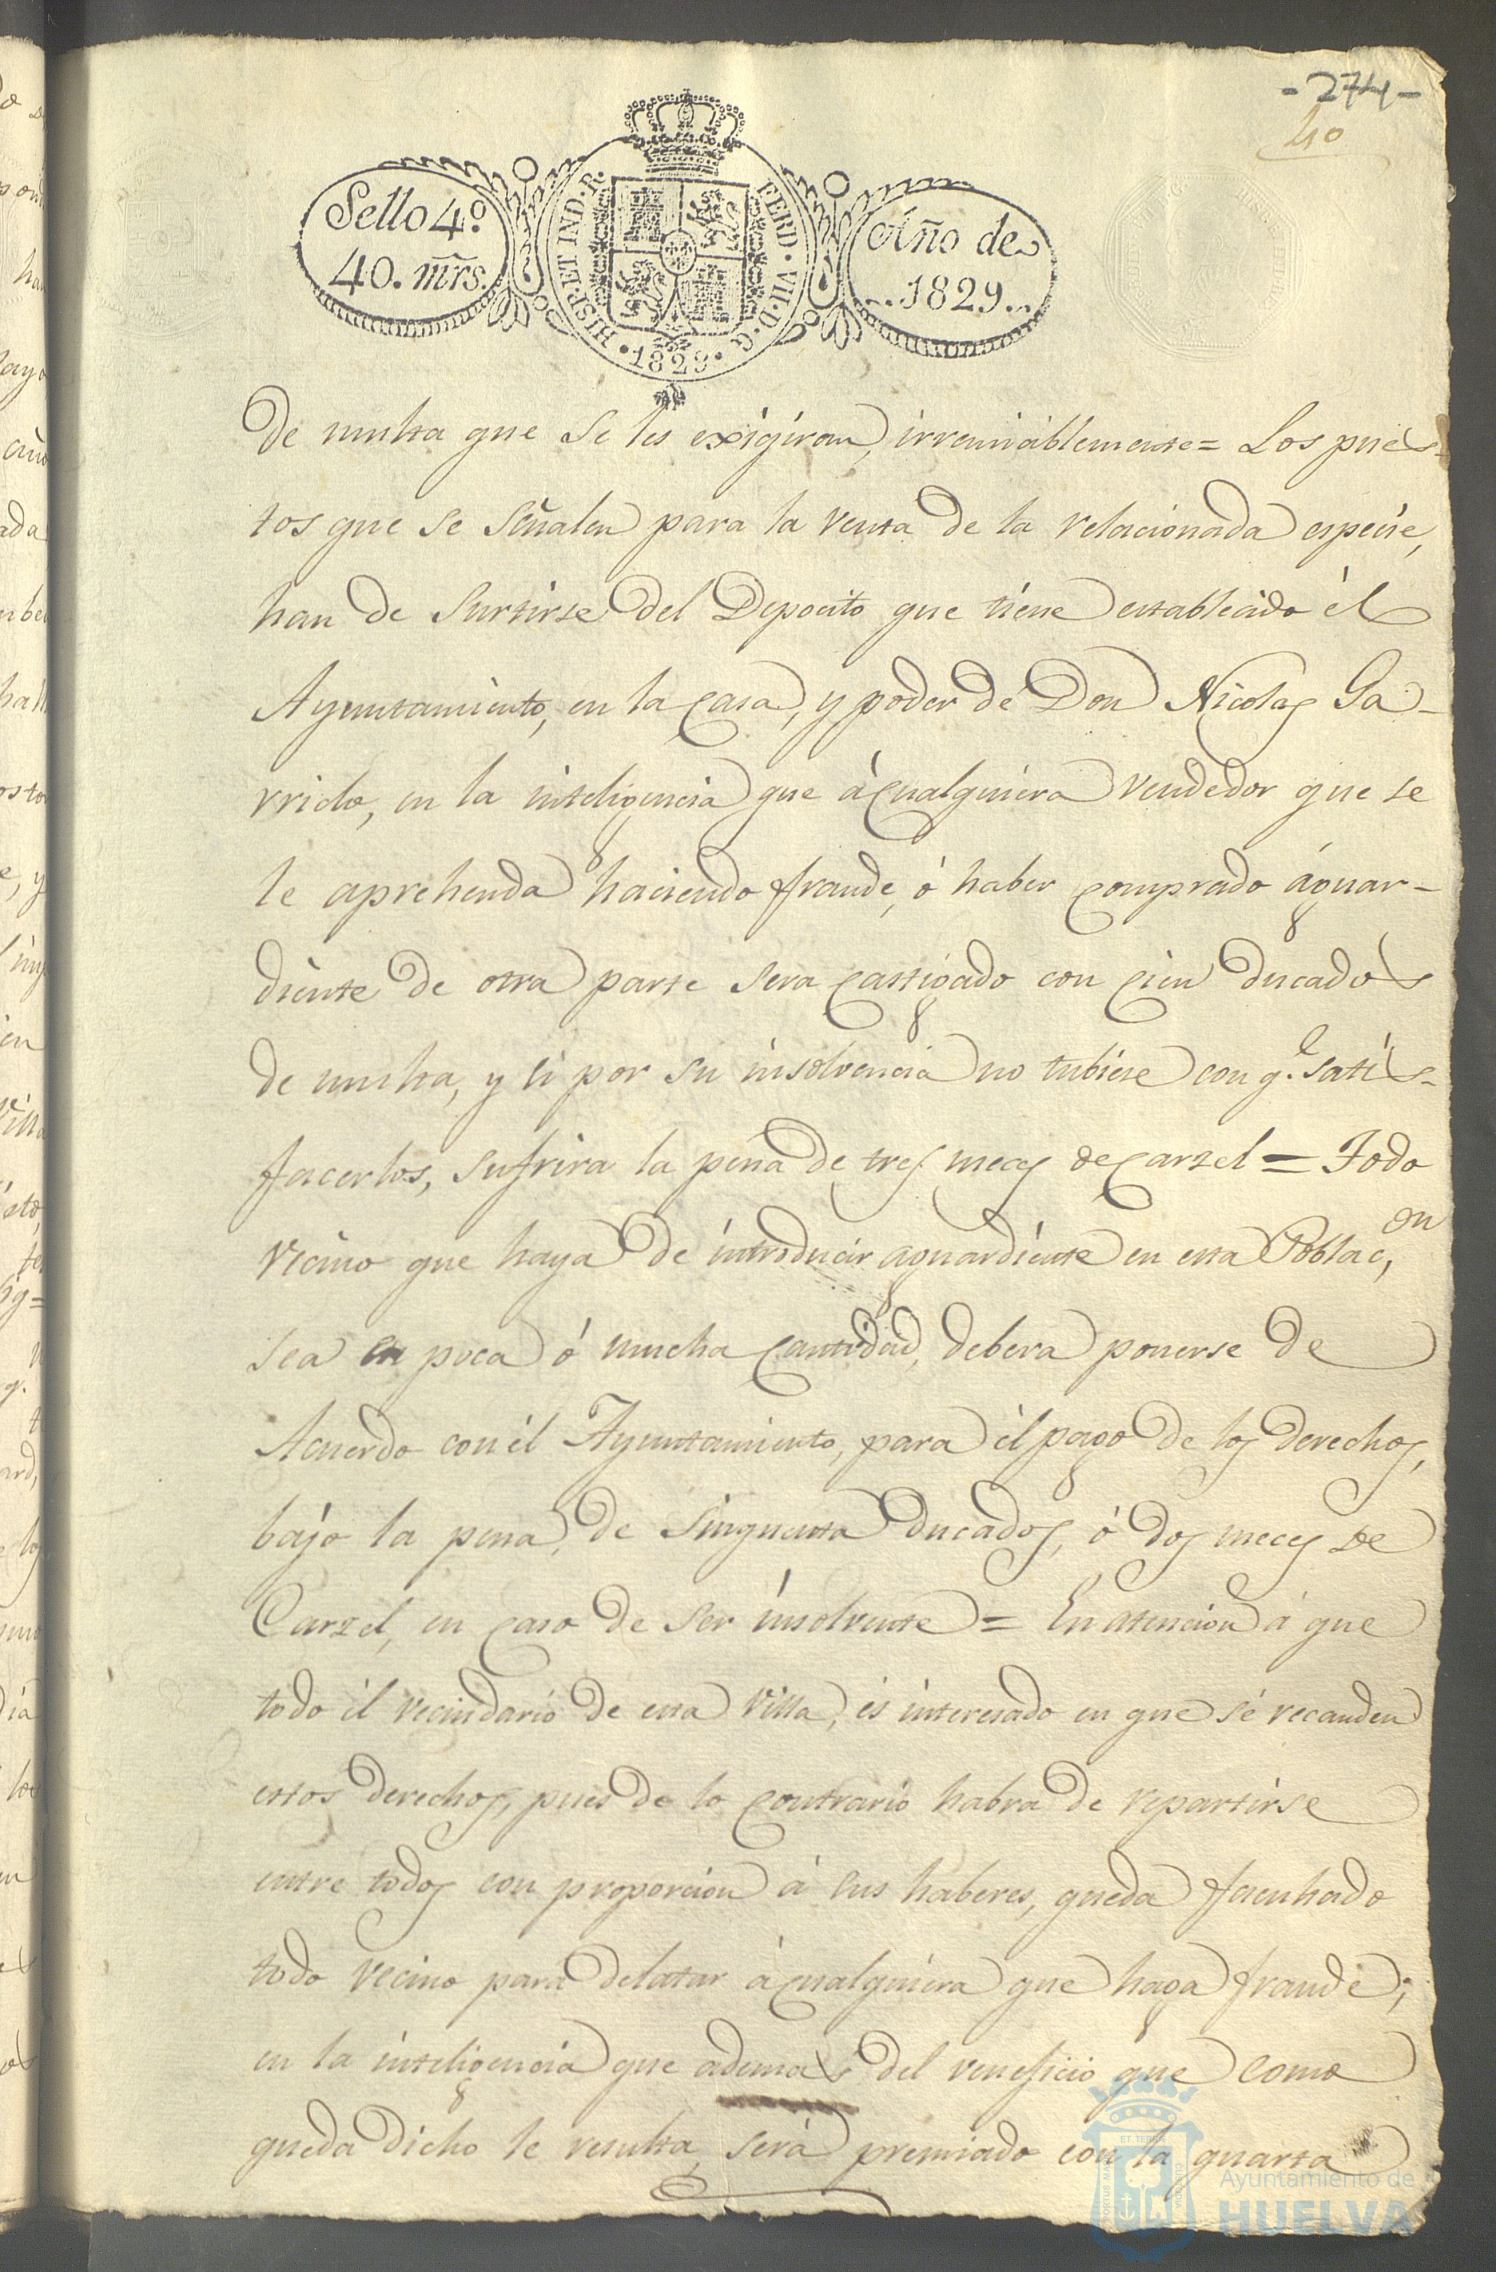 -274-
40
Sello 4.º
40. mrs.
HISP. ET IND. R.
FERD. VII. D. G.
1829
Año de
1829
De multa que Se les exigiran, irremiciblemente = Los pues-
tos que se Señalen para la venta de la relacionada especie,
han de Surtirse del Depocito que tiene establecido él
Ayuntamiento, en la Casa, y poder de Don Nicolas Ga-
rrido, en la inteligencia que à cualquiera vendedor que se
le aprehenda haciendo fraude, ó haber comprado águar-
diente de otra parte sera castigado con cien ducados
de multa, y si por su insolvencia no tubiese con q.e satis-
facerlos, sufrira la pena de tres meces de Carzel = Todo
vecino que haya de introducir aguardiente en esta Poblac,on
sea en poca ó mucha Cantidad, debera ponerse de
Acuerdo con él Ayuntamiento, para él pago de los derechos,
bajo la pena, de Sinquenta ducados, ó dos meces de
Carzel, en caso de ser insolvente = En atencion á que
todo él vecindario de esta Villa, és interesado en que sé recauden
estos derechos, pues de lo contrario habra de repartirse
entre todos con proporcion á sus haberes, queda facultado
todo vecino para delatar à cualquiera que haga fraude;
en la inteligencia que ademas del veneficio que como
queda dicho le resulta, será premiado con la quarta
Ayuntamiento de
HUELVA